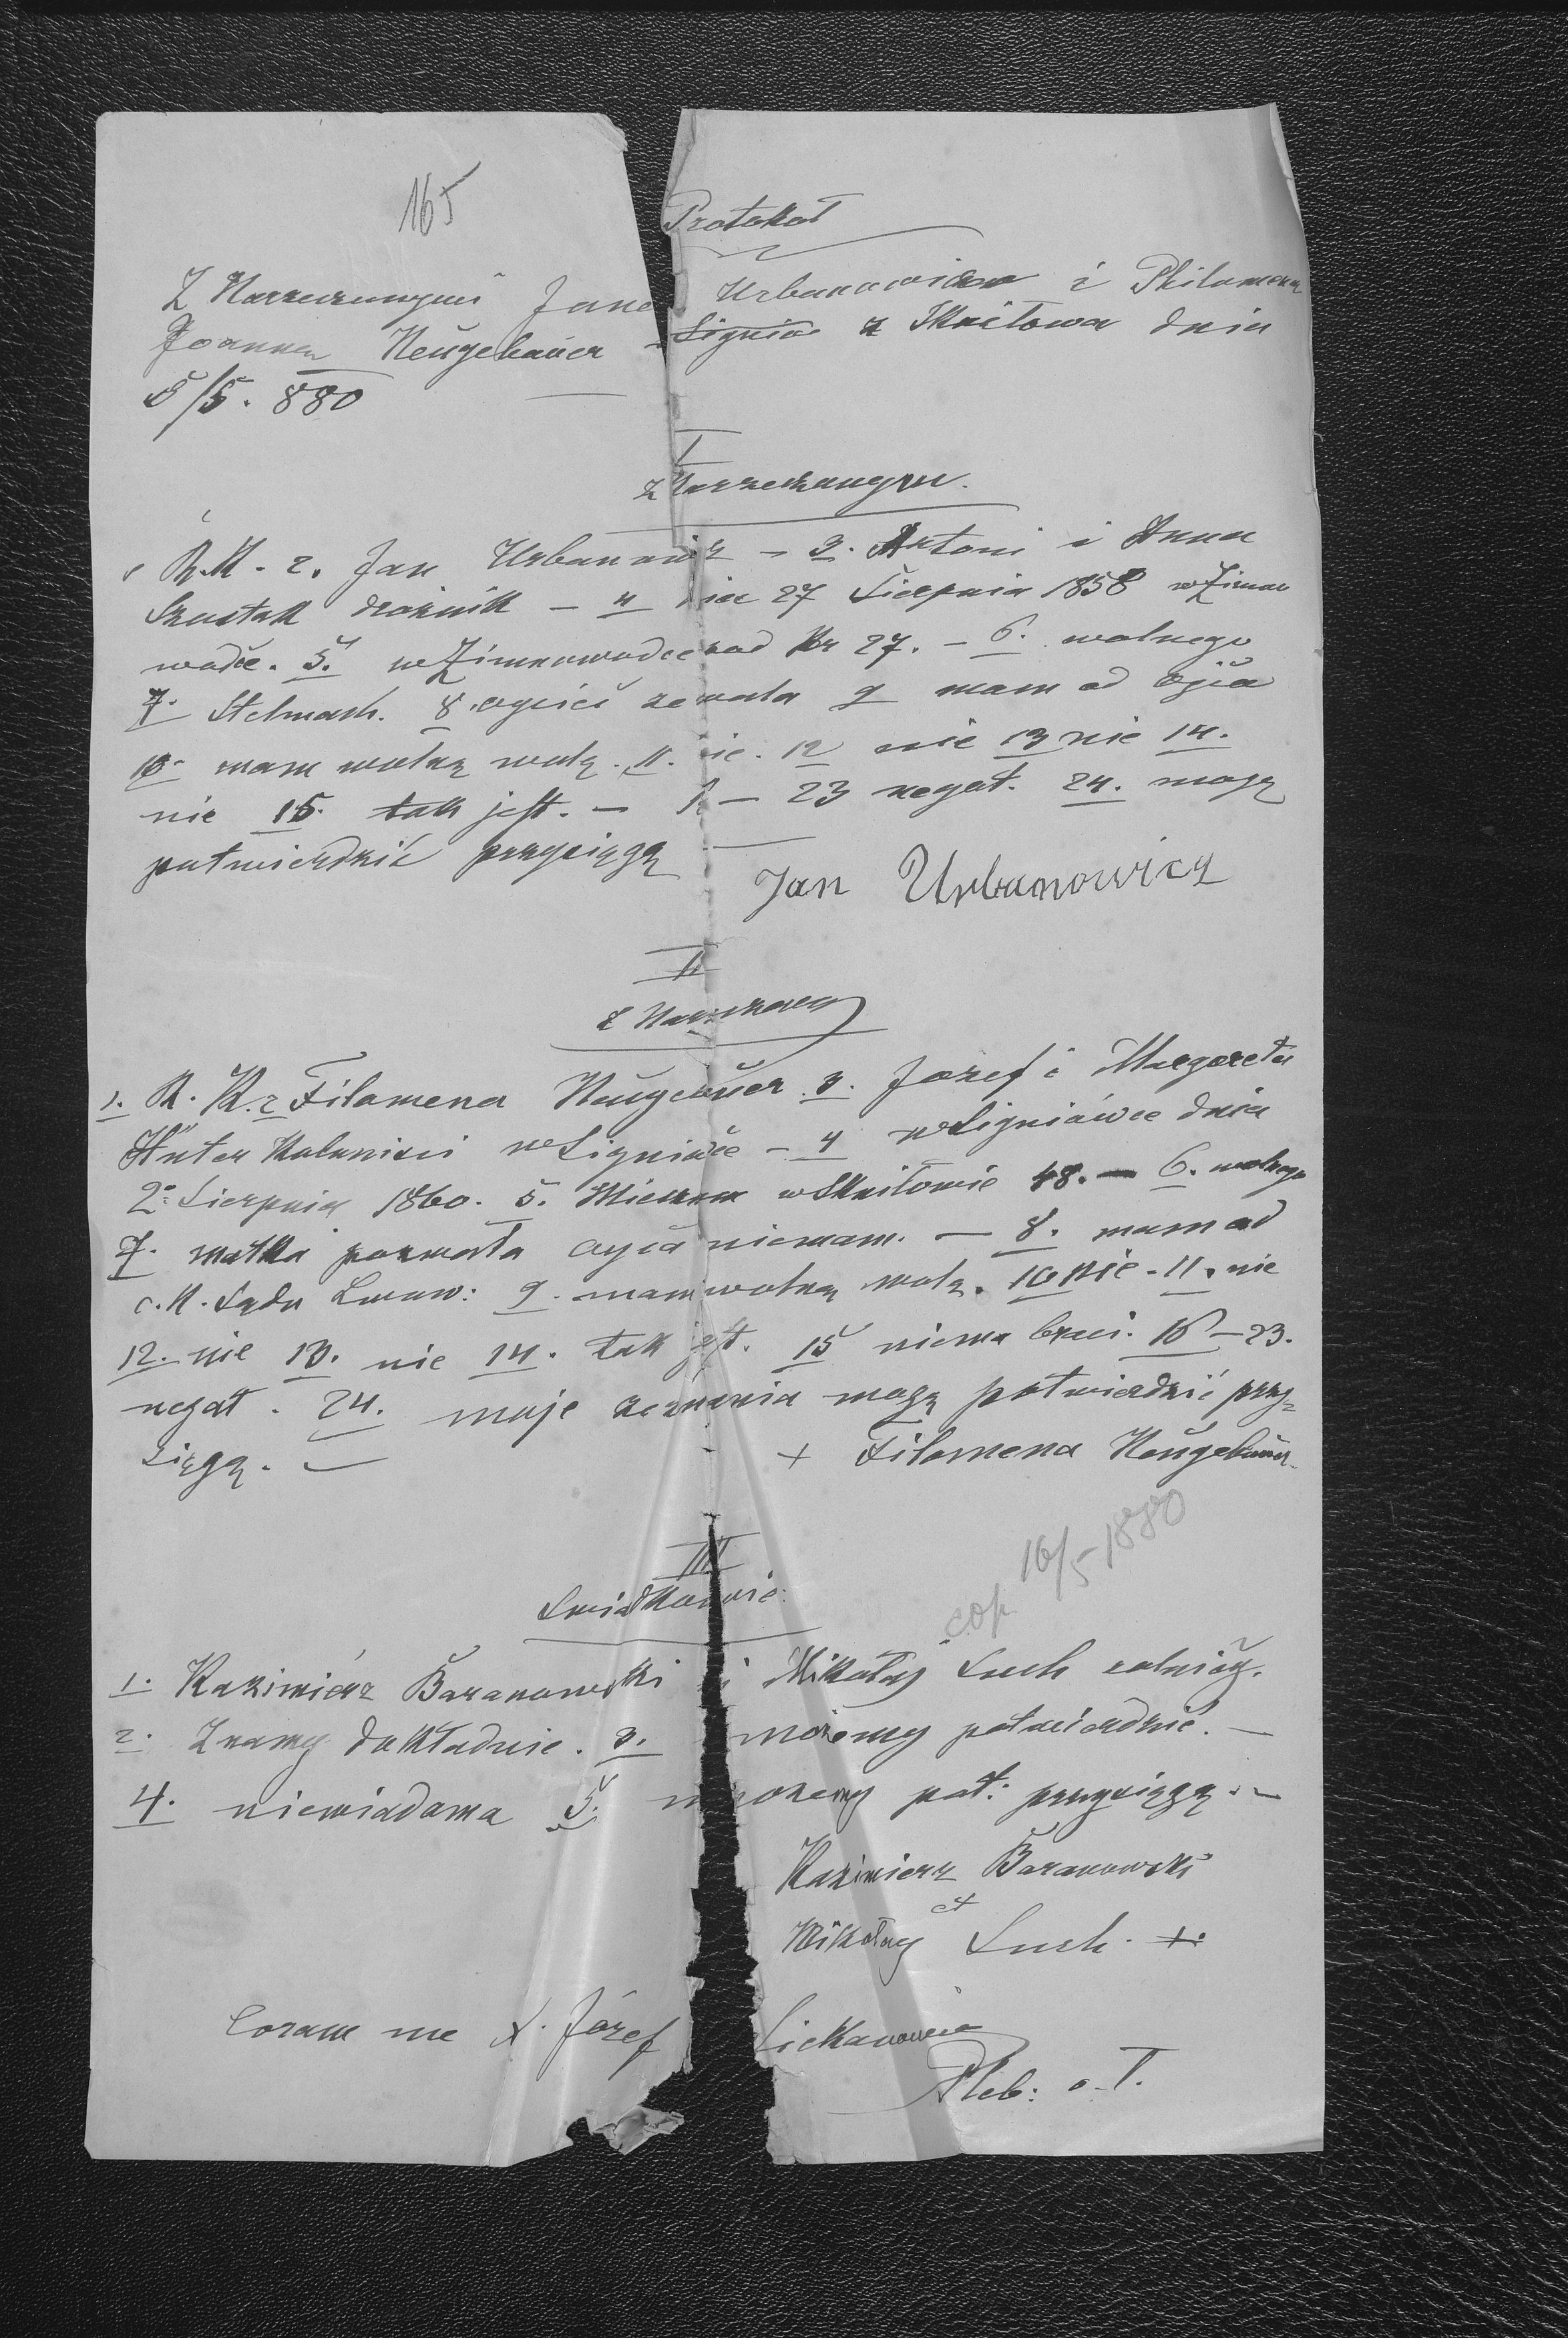 165
Protokół
Z Narzeczonymi Jana Urbanowicza i Philomena
Joanna Neŭgebaŭer Signiów z Skniłowa dnia
5/5. 880
I
z Narzeczonym.
R.K. - 2. Jan Urbanowicz - 3. Antoni i Anna
Szostak drożnik - 4 dnia 27 Sierpnia 1858 w Zimno
wodce. 5. w Zimnowodce pod Nr 27. - 6. wolnego
7. Stelmach. 8. ojciec zezwala 9 mam od ojca
10. mam wolną wolę. 11. nie. 12 nie 13 nie 14.
nie 15. tak jest. - - 23 negat. 24. mogę
potwierdzić przysięgą
Jan Urbanowicz
II
Z Narzeczoną
1. R. K. 2 Filomena Neŭgebaŭer 3. Jozef i Margareta
Koloniści w Signiówce - 4 w Signiówce dnia
2. Sierpnia 1860. 5. Mieszka w Skniłowie 48. - 6. wolnego
7. matka pozwala ojca niemam. - 8. mam od
c. K. Sądu Lwow: 9. mam wolną wolę. 10 nie - 11. nie
12. nie 13. nie 14. tak jest. 15 niema braci. 16 - 23.
negat. 24. moje zeznania mogę potwierdzić przy=
sięgą. -
+ Filomena Neŭgebaŭer
16/5 1880
cop.
III
Swiadkowie:
1. Kazimierz Baranowski i Mikołaj Luch rolnicy.
2. Znamy dokładnie. 3. możemy potwierdzić. -
4. niewiadoma 5. możemy pot: przysięgą. -
Kazimierz Baranowski
et
Mikołay Luch. +.
Coram me X. Józef
Pleb: o. T.